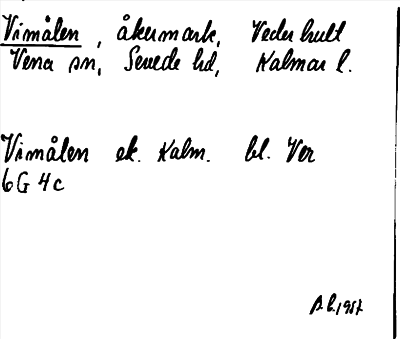 Vimålen, åkermark, Vederhult
Vena sn, Sevede hd, Kalmar l.
Vimålen ek. Kalm. bl. Ver
6G 4c